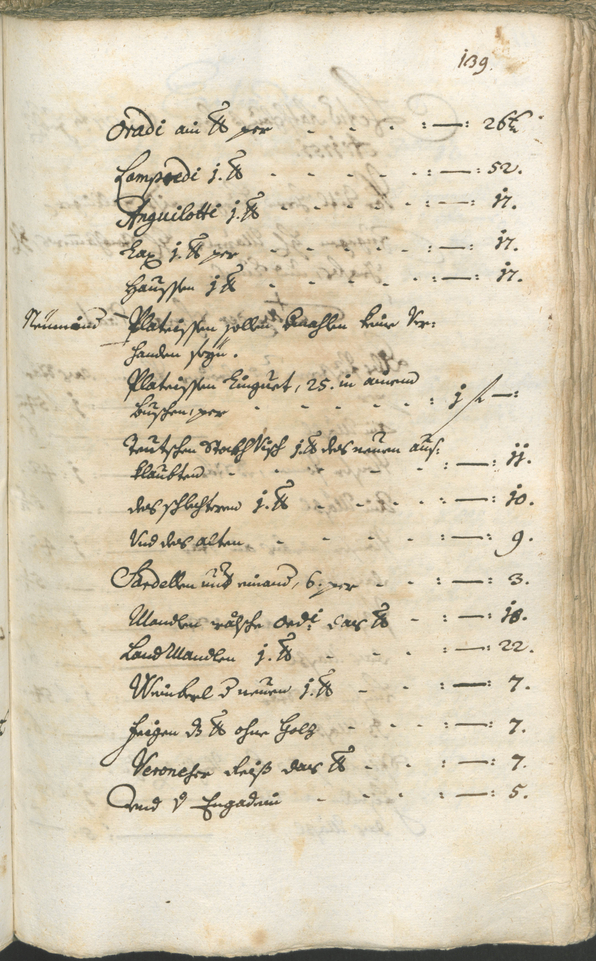 139.
Oradi ain ℔ per - - - - : — : 26
Lampredi j. ℔ - - - - - : — : 52.
Anguilotti j. ℔ - - - - - : — : 17.
Lax j. ℔ per - - - - : — : 17.
Haussen j ℔ - - - - - : — : 17.
Plateissen sollen dmahlen keine Ver:
handen seyn.
Plateissen Linguet, 25. in ainem
buschen, per - - - - : j f — :
Teutschen Stockhfisch j. ℔ des neuen aus:
klaubten - - - - : — : 11.
des schlechtern j. ℔ - - - - : — : 10.
Und des alten - - - - : — : 9.
Sardellen und einand, 6. per - - : — : 3.
Mandlen wälsche ordi: das ℔ - : — : 18.
Land Mandlen j. ℔ - - - : — : 22.
Weinberl d neuen j. ℔ - - - : — : 7.
Feigen ds ℔ ohne Holz - - : — : 7.
Veroneser Reiß das ℔ - - - : — : 7.
- - - : — : 5.